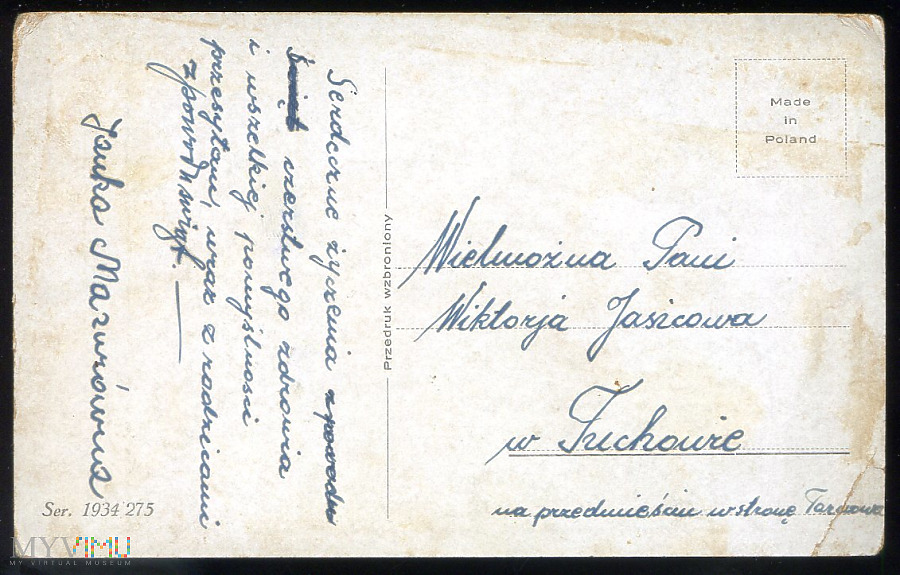 Serdeczne życzenia z powodu
Świąt czerstwego zdrowia
i wszelkiej pomyślności
przesyłam, wraz z rodzicami
z powodu świąt.
Janka Mazurówna
Ser. 1934 275
Przedruk wzbroniony
Made
in
Poland
Wielmożna Pani
Wiktorja Jasicowa
w Tuchowie
na przedmieściu w stronę Tarnowa
MYVIMU
MY VIRTUAL MUSEUM